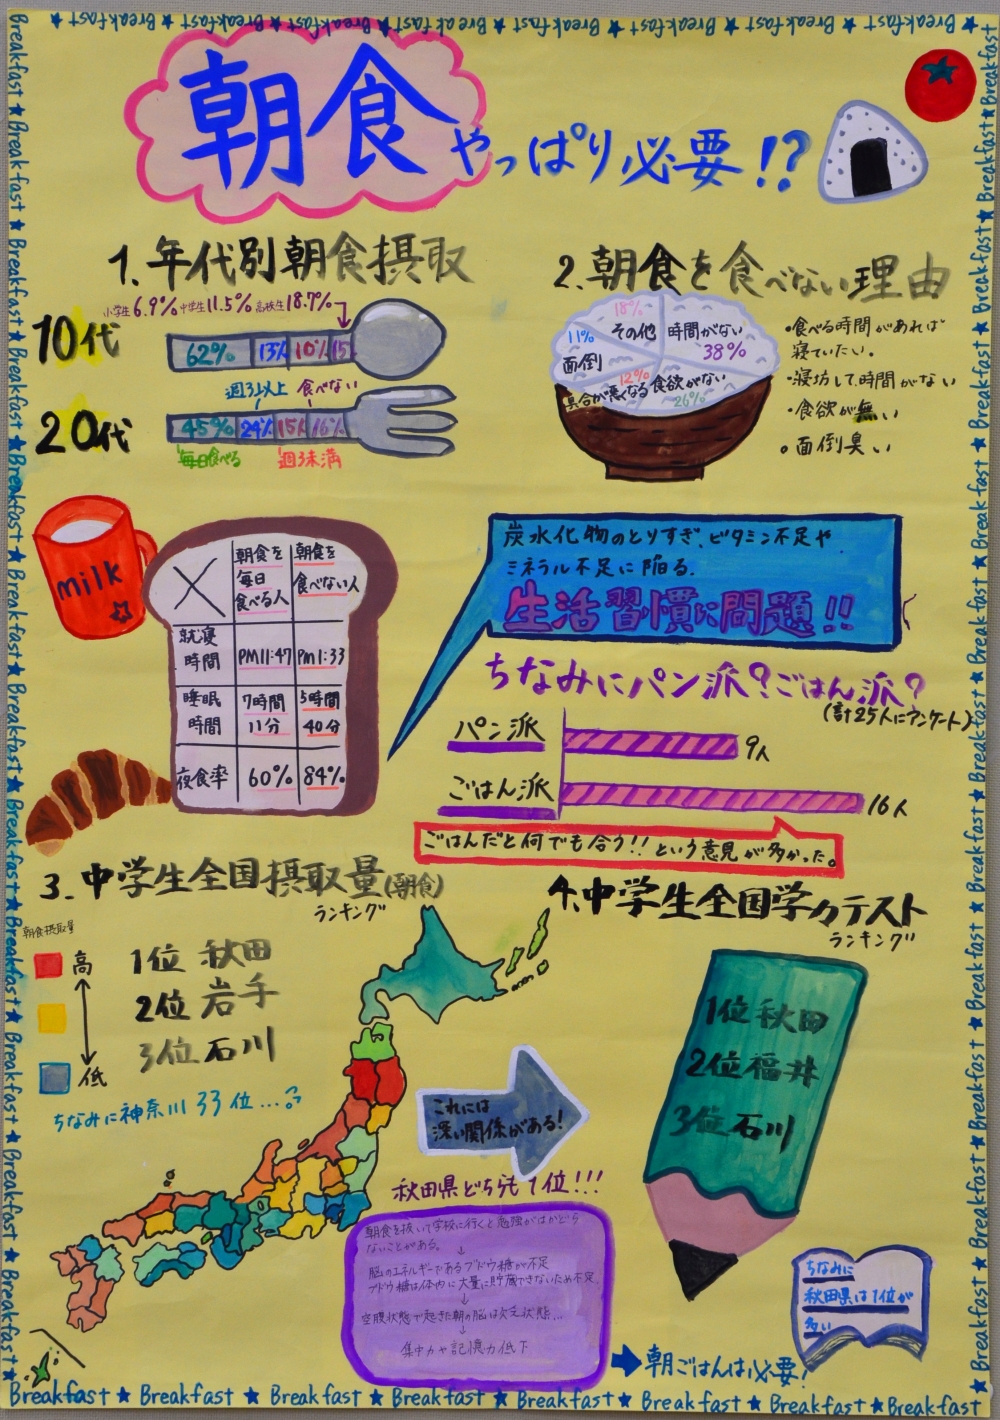 Breakfast ★ Breakfast ★ Breakfast ★ Breakfast ★ Breakfast ★ Breakfast ★ Breakfast
朝食やっぱり必要!?
1.年代別朝食摂取
小学生6.9% 中学生11.5% 高校生18.7%
10代
62% 13% 10% 15
週3以上 食べない
20代
45% 24% 15% 16%
毎日食べる 週3未満
2.朝食を食べない理由
18% その他
時間がない 38%
11% 面倒
12% 具合が悪くなる
食欲がない 26%
・食べる時間があれば
寝ていたい。
・寝坊して時間がない
・食欲が無い
・面倒臭い
milk
朝食を毎日食べる人 朝食を食べない人
就寝時間 PM11:47 PM1:33
睡眠時間 7時間11分 5時間40分
夜食率 60% 84%
炭水化物のとりすぎ、ビタミン不足や
ミネラル不足に陥る.
生活習慣に問題!!
ちなみにパン派?ごはん派?
(計25人にアンケート)
パン派 9人
ごはん派 16人
ごはんだと何でも合う!!という意見が多かった。
3.中学生全国摂取量(朝食)
ランキング
朝食摂取量
高
低
1位 秋田
2位 岩手
3位 石川
ちなみに神奈川33位...
4.中学生全国学力テスト
ランキング
1位秋田
2位福井
3位石川
これには
深い関係がある!
秋田県どちらも1位!!!
朝食を抜いて学校に行くと勉強がはかどら
ないことがある。
↓
脳のエネルギーであるブドウ糖が不足
ブドウ糖は体内に大量に貯蔵できないため不足
↓
空腹状態で起きた朝の脳は欠乏状態...
↓
集中力や記憶力低下
朝ごはんは必要!
ちなみに
秋田県は1位が
多い
Breakfast ★ Breakfast ★ Breakfast ★ Breakfast ★ Breakfast ★ Breakfast ★ Breakfast ★ Breakfast